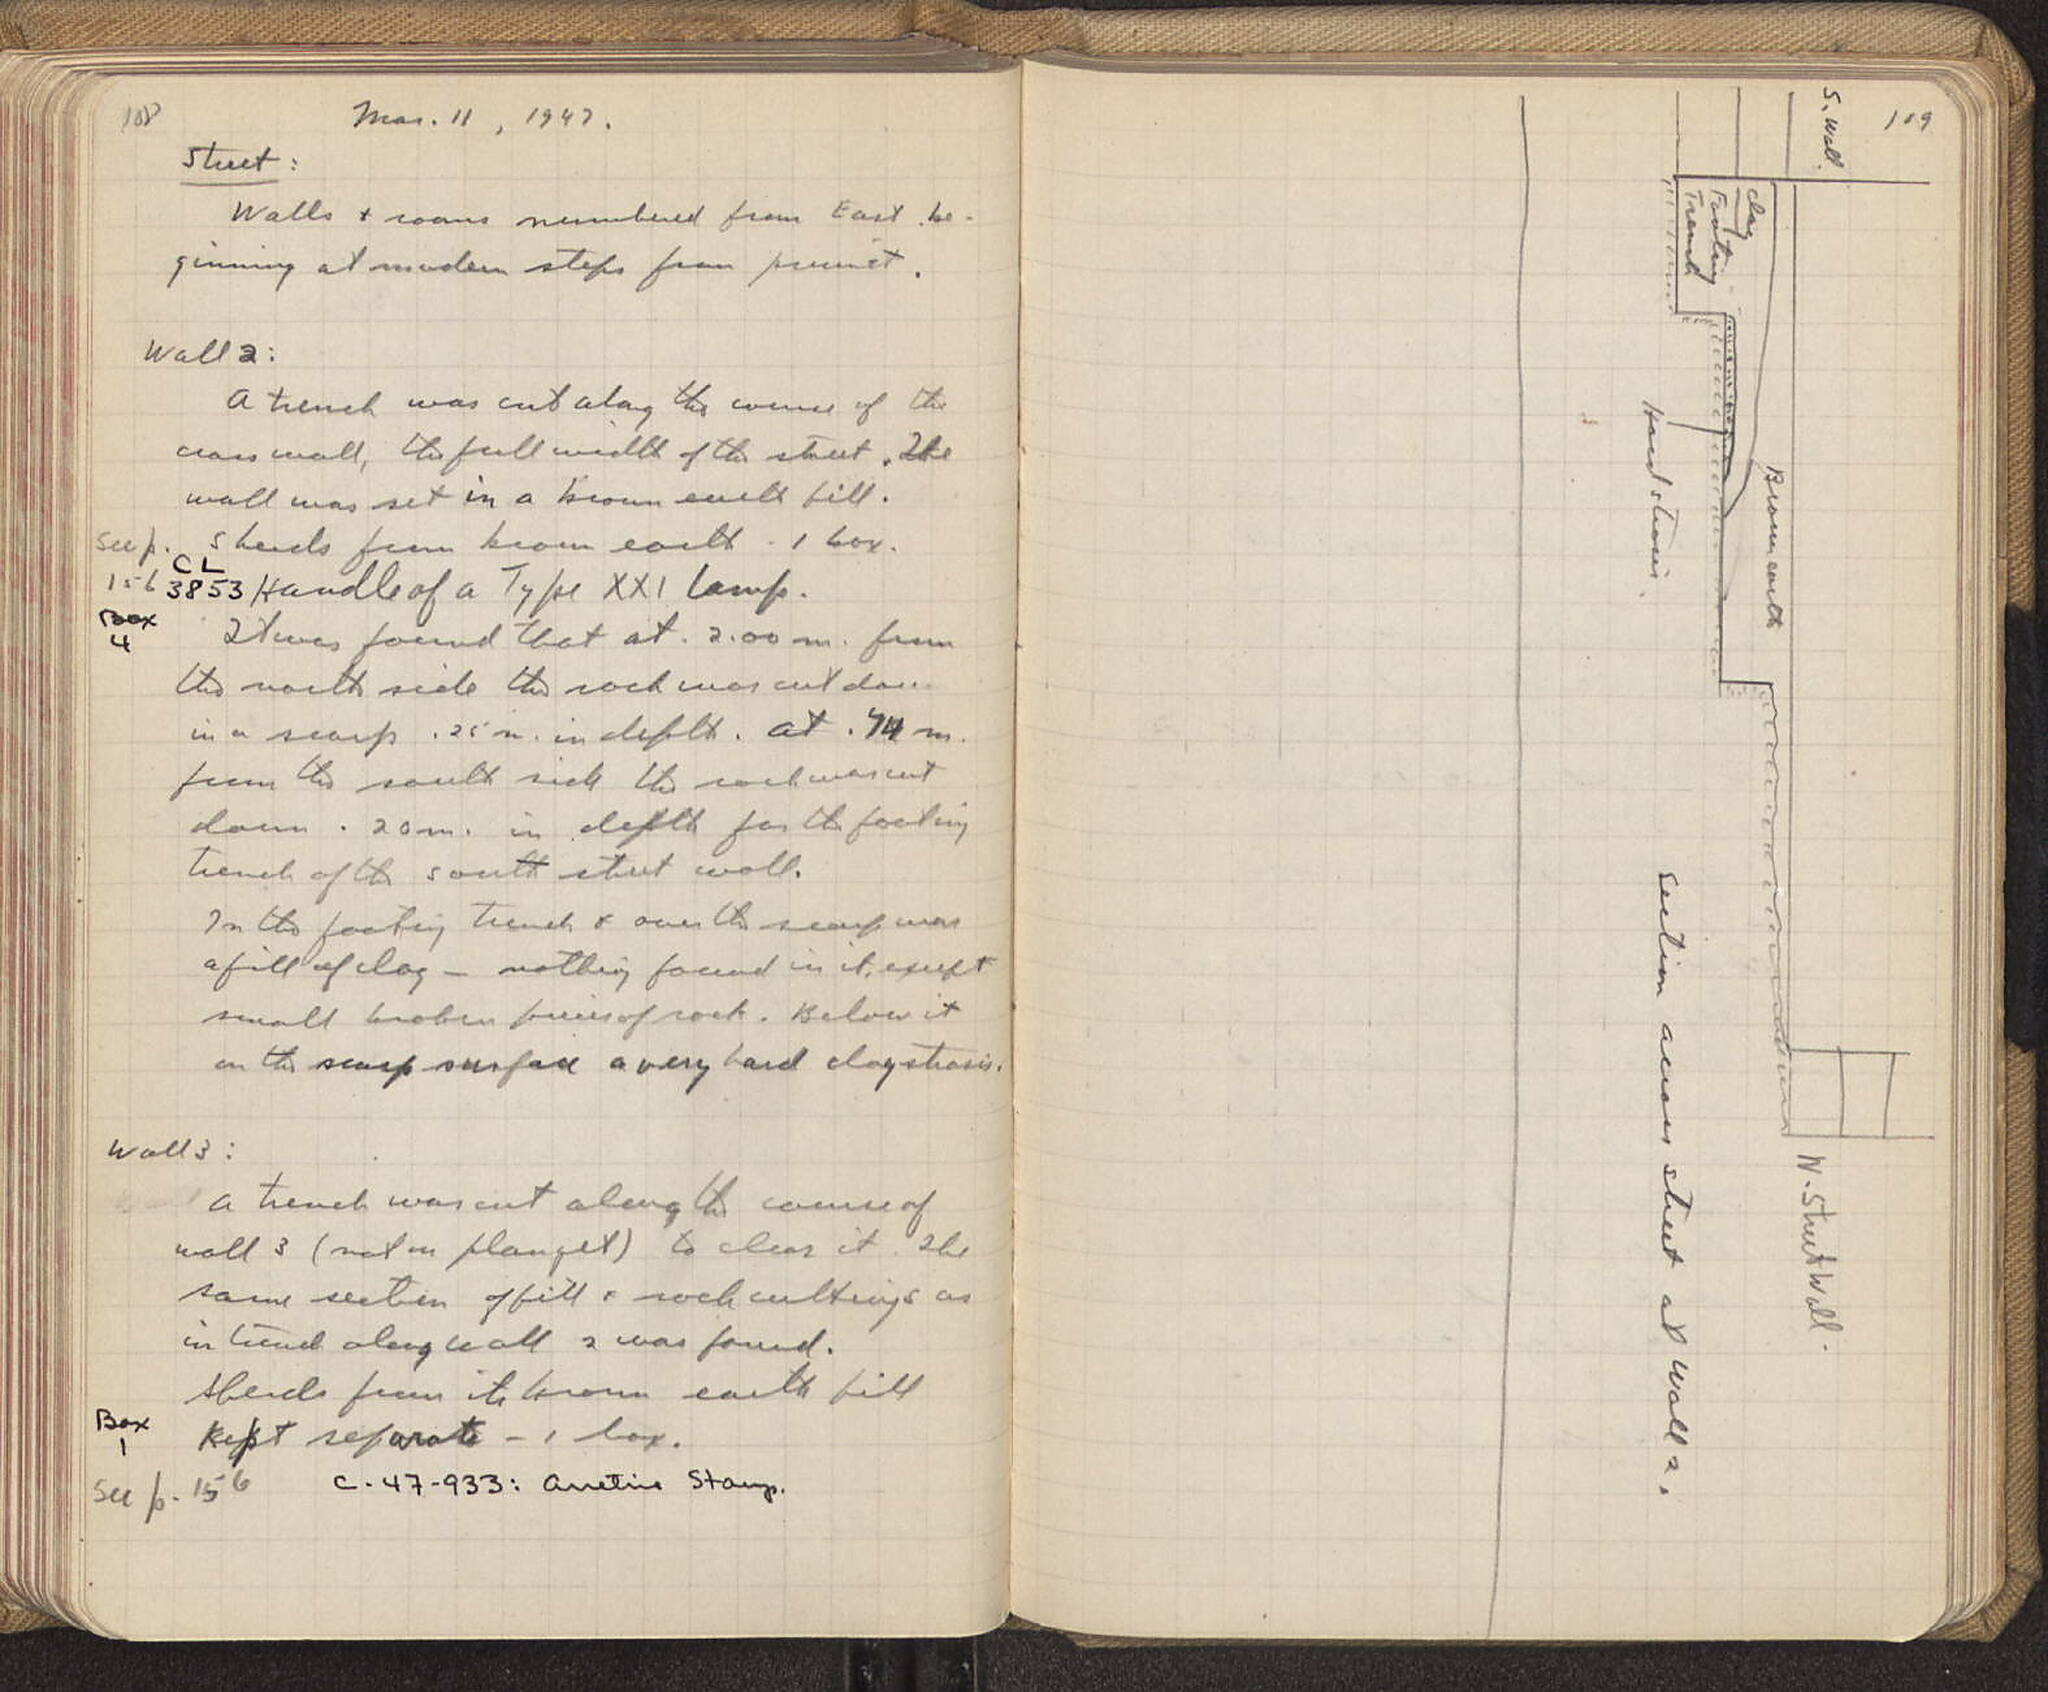 108
Mar. 11, 1947.
Street:
Walls + rooms numbered from East be-
ginning at modern steps from precinct.
Wall 2:
A trench was cut along the course of the
cross wall, the full width of the street. The
wall was set in a brown earth fill.
See p. Sherds from brown earth - 1 box.
CL
156 3853 Handle of a Type XXI lamp.
Box
4
It was found that at 2.00 m. from
the north side the rock was cut down
in a scarp .25 m. in depth. At .74 m.
from the south side the rock was cut
down .20 m. in depth for the footing
trench of the south street wall.
In the footing trench + over the scarp was
a fill of clay – nothing found in it, except
small broken pieces of rock. Below it
on the scarp surface a very hard clay strosis.
Wall 3:
A trench was cut along the course of
wall 3 (not on plan yet) to clear it. The
same section of fill + rock cuttings as
in trench along wall 2 was found.
Sherds from its brown earth fill
Box
1
kept separate – 1 box.
See p. 156
C-47-933: Arretine Stamp.
109
S. Wall.
Clay
Footing
Trench
Hard strosis.
Brown earth
N. Street Wall.
Section across street at Wall 2.